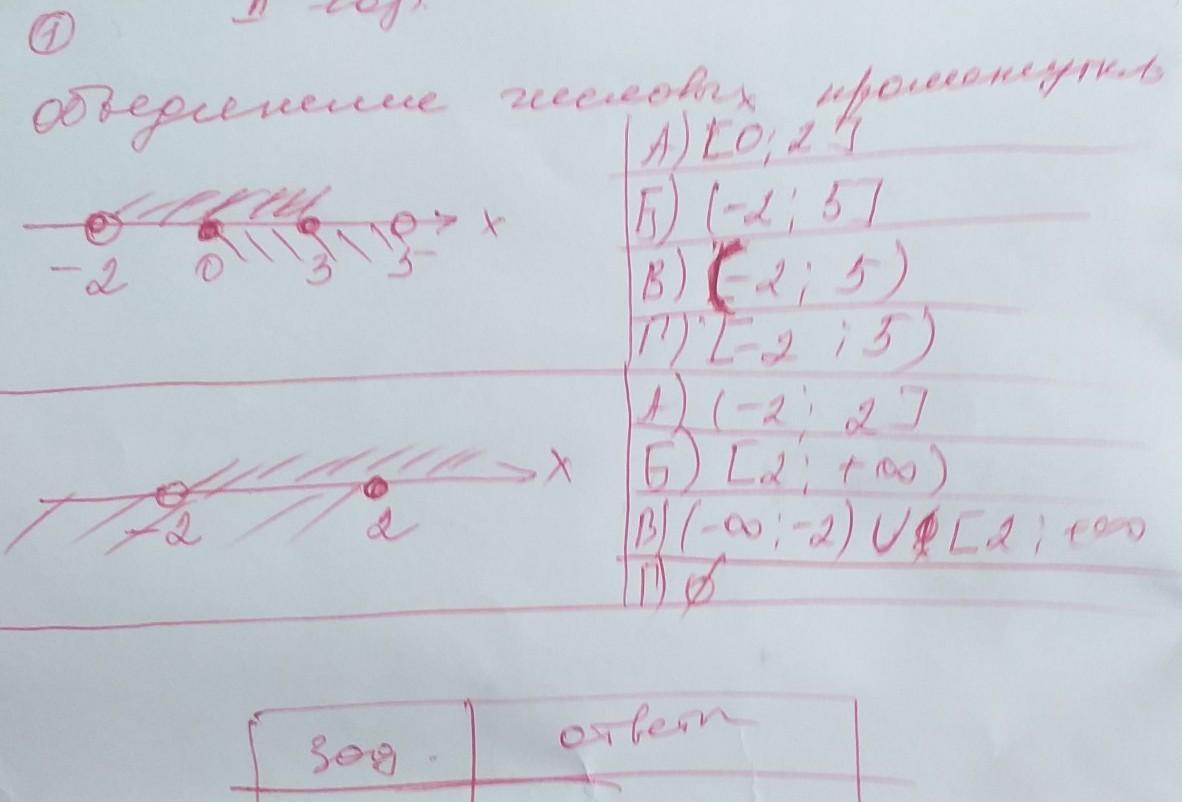 ①
II
объединение числовых промежутков
А) [0; 2]
-2 0 3 5 x
Б) (-2; 5]
В) (-2; 5)
Г) [-2; 5)
А) (-2; 2]
-2 2 x
Б) [2; +∞)
В) (-∞; -2) ∪ [2; +∞
Г) ∅
зад. ответ